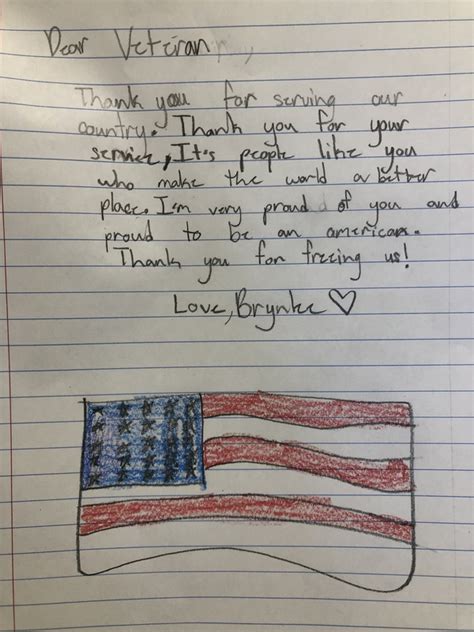 Dear Veteran,
Thank you for serving our
country. Thank you for your
service, It's people like you
who make the world a better
place. I'm very proud of you and
proud to be an american.
Thank you for freeing us!
Love, Brynlee ♡